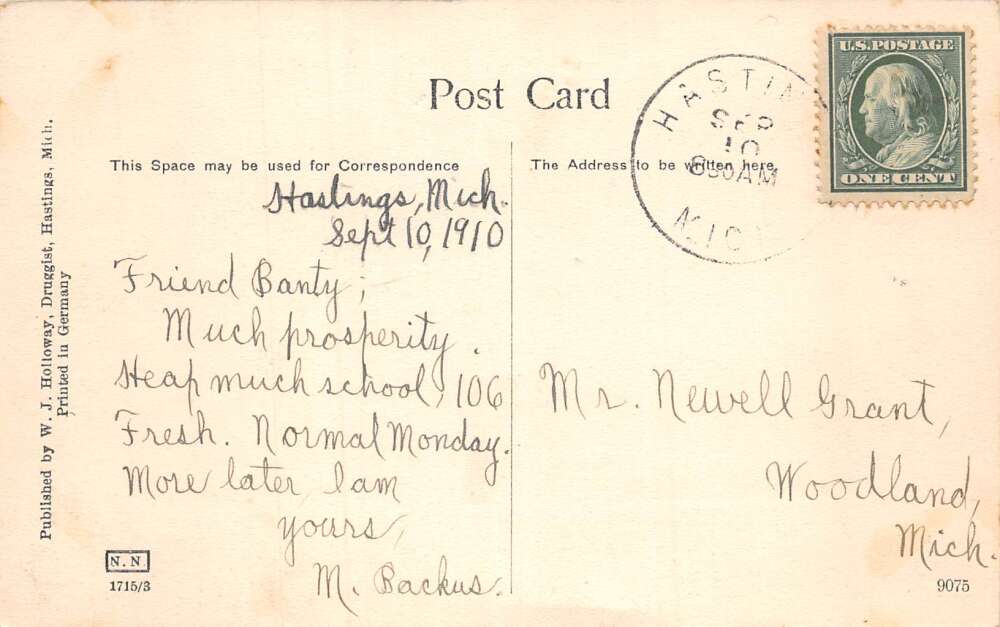 Post Card
This Space may be used for Correspondence
The Address to be written here
Hastings, Mich.
Sept 10, 1910
Friend Banty;
Much prosperity.
Heap much school, 106
Fresh. Normal Monday.
More later, I am
yours,
M. Backus.
Mr. Newell Grant,
Woodland,
Mich.
HASTIN
SEP
10
830AM
MIC
U.S. POSTAGE
ONE CENT
Published by W. J. Holloway, Druggist, Hastings, Mich.
Printed in Germany
N. N.
1715/3
9075